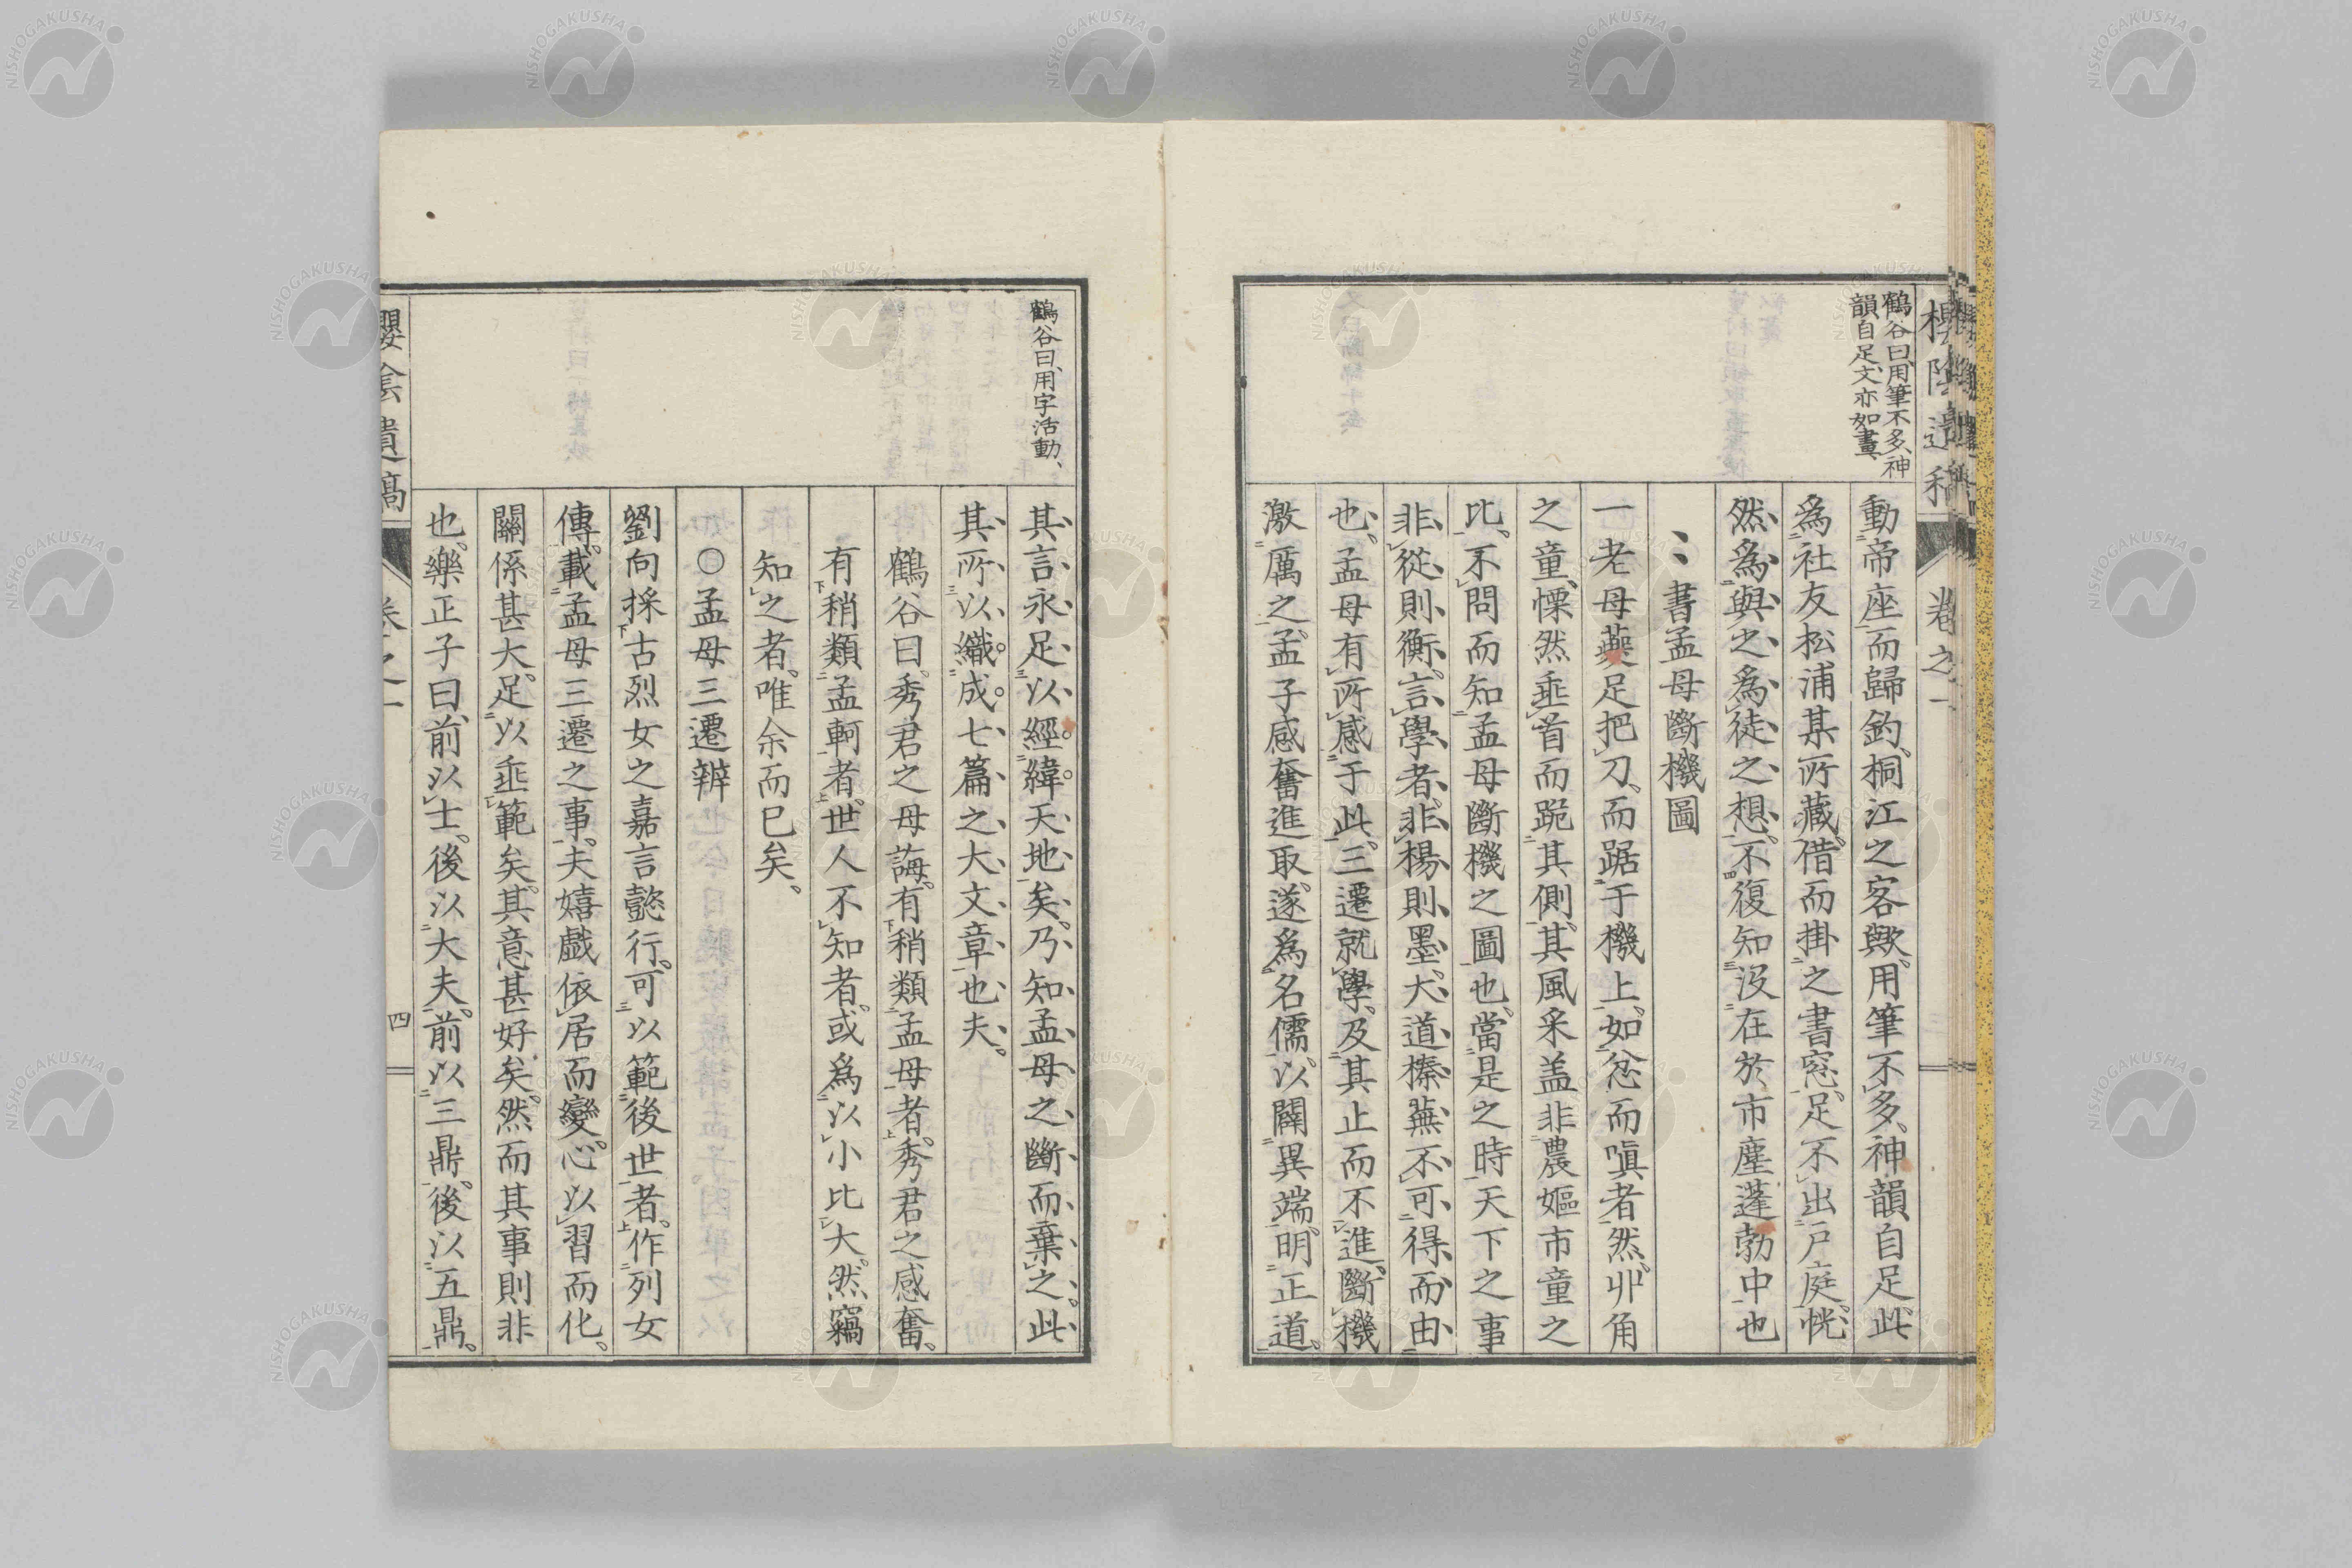 鶴谷曰、用筆不多、神
韻自足、文亦如畫、
動帝座而歸釣、桐江之客歟。用筆不多、神韻自足、此
爲社友松浦某所藏。借而掛之書窓。足不出戸庭。恍
然、爲、與、之、爲、徒、之、想。不復知沒在於市塵蓬勃中也
書孟母斷機圖
一老母燕足把刀、而踞于機上。如忿而嗔者然。丱角
之童、慄然垂首而跪其側。其風采盖非農嫗市童之
比。不問而知孟母斷機之圖也。當是之時天下之事
非、從、則、衡、言、學、者、非、楊、則、墨、大、道、榛、蕪、不、可、得、而、由、
也、孟母有所感于此。三遷就學。及其止而不進。斷機
激厲之。孟子感奮進取。遂爲名儒。以闢異端。明正道。
卷之一
鶴谷曰、用字活動、
其、言、永、足、以、經。緯。天、地、矣。乃、知、孟、母、之、斷、而、棄、之。此、
其、所、以、織。成。七、篇、之、大、文、章、也、夫。
鶴谷曰。秀君之母誨。有稍類孟母者。秀君之感奮。
有稍類孟軻者。世人不知者。或爲以小比大。然竊
知之者。唯余而已矣、
○孟母三遷辨
劉向採古烈女之嘉言懿行。可以範後世者。作列女
傳。載孟母三遷之事。夫嬉戲依居而變心。以習而化。
關係甚大。足以垂範矣。其意甚好矣。然而其事則非
也。樂正子曰、前以士。後以大夫。前以三鼎。後以五鼎。
四